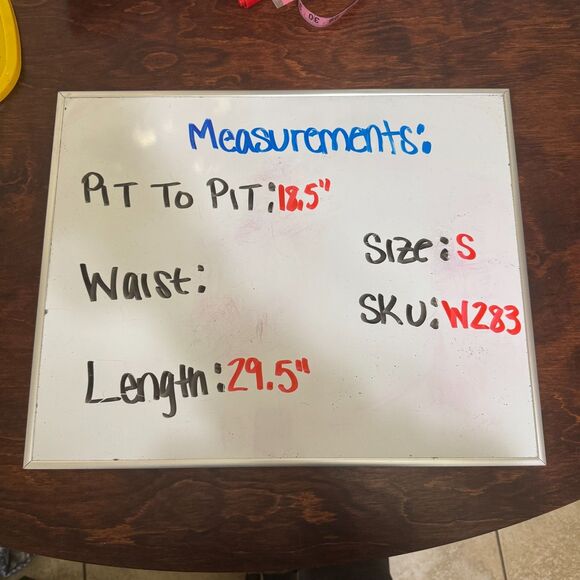 Measurements:
PIT TO PIT: 18.5"
Size: S
Waist:
SKU: W283
Length: 29.5"
30